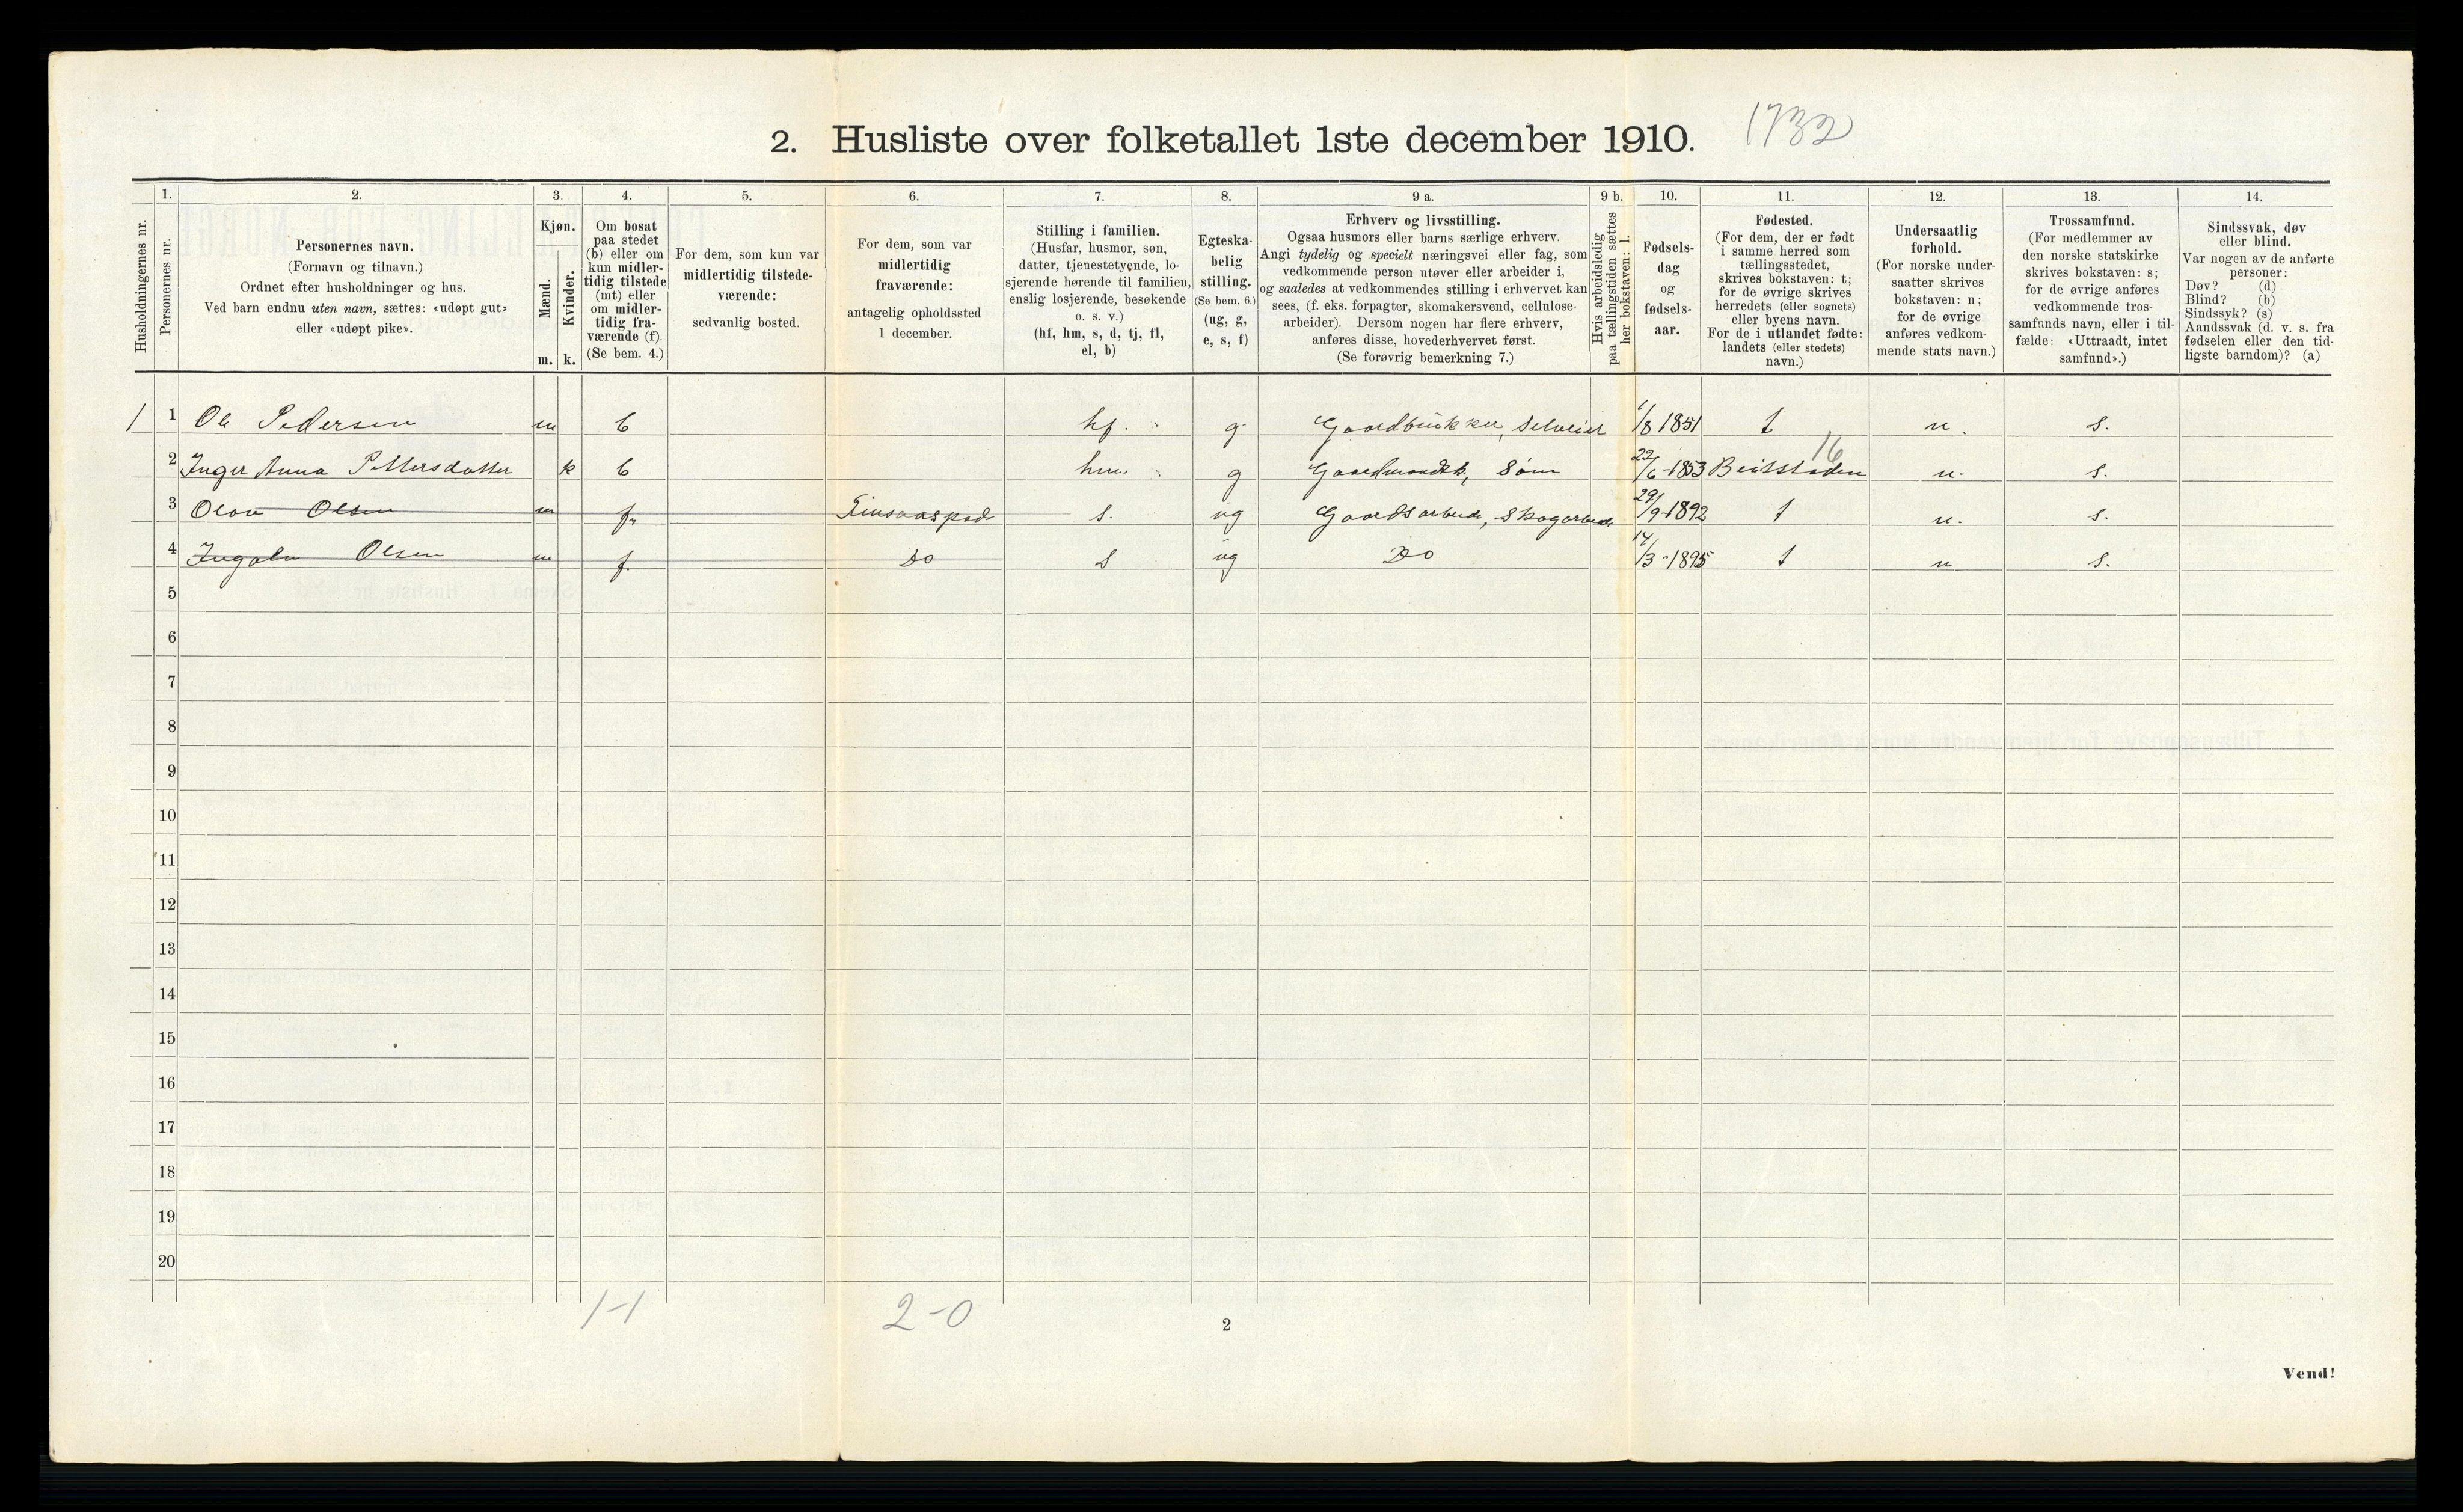 2. Husliste over folketallet 1ste december 1910. 1732
1. 2. 3. 4. 5. 6. 7. 8. 9 a. 9 b. 10. 11. 12. 13. 14.
Husholdningernes nr.
Personernes nr.
Personernes navn.
(Fornavn og tilnavn.)
Ordnet efter husholdninger og hus.
Ved barn endnu uten navn, sættes: «udøpt gut»
eller «udøpt pike».
Kjøn.
Mænd.
Kvinder.
m. k.
Om bosat
paa stedet
(b) eller om
kun midler-
tidig tilstede
(mt) eller
om midler-
tidig fra-
værende (f).
(Se bem. 4.)
For dem, som kun var
midlertidig tilstede-
værende:
sedvanlig bosted.
For dem, som var
midlertidig
fraværende:
antagelig opholdssted
1 december.
Stilling i familien.
(Husfar, husmor, søn,
datter, tjenestetyende, lo-
sjerende hørende til familien,
enslig losjerende, besøkende
o. s. v.)
(hf, hm, s, d, tj, fl,
el, b)
Egteska-
belig
stilling.
(Se bem. 6.)
(ug, g,
e, s, f)
Erhverv og livsstilling.
Ogsaa husmors eller barns særlige erhverv.
Angi tydelig og specielt næringsvei eller fag, som
vedkommende person utøver eller arbeider i,
og saaledes at vedkommendes stilling i erhvervet kan
sees, (f. eks. forpagter, skomakersvend, cellulose-
arbeider). Dersom nogen har flere erhverv,
anføres disse, hovederhvervet først.
(Se forøvrig bemerkning 7.)
Hvis arbeidsledig
paa tællingstiden sættes
her bokstaven: l.
Fødsels-
dag
og
fødsels-
aar.
Fødested.
(For dem, der er født
i samme herred som
tællingsstedet,
skrives bokstaven: t;
for de øvrige skrives
herredets (eller sognets)
eller byens navn.
For de i utlandet fødte:
landets (eller stedets)
navn.)
Undersaatlig
forhold.
(For norske under-
saatter skrives
bokstaven: n;
for de øvrige
anføres vedkom-
mende stats navn.)
Trossamfund.
(For medlemmer av
den norske statskirke
skrives bokstaven: s;
for de øvrige anføres
vedkommende tros-
samfunds navn, eller i til-
fælde: «Uttraadt, intet
samfund».)
Sindssvak, døv
eller blind.
Var nogen av de anførte
personer:
Døv? (d)
Blind? (b)
Sindssyk? (s)
Aandssvak (d. v. s. fra
fødselen eller den tid-
ligste barndom)? (a)
1 1 Ole Pedersen m b hf. g Gaardbruker, Selveier 1/8 1851 t n. s.
16
2 Inger Anna Pettersdatter k b hm. g Søm 22/6-1853 Beitstaden n. s.
3 Olav Olsen m f. s. ug Gaardsarbeide, Skogarbeide 29/9-1892 t n. s.
4 Olsen m f. Do s ug Do 14/3-1895 t n s.
5
6
7
8
9
10
11
12
13
14
15
16
17
18
19
20
1-1 2-0
2
Vend!